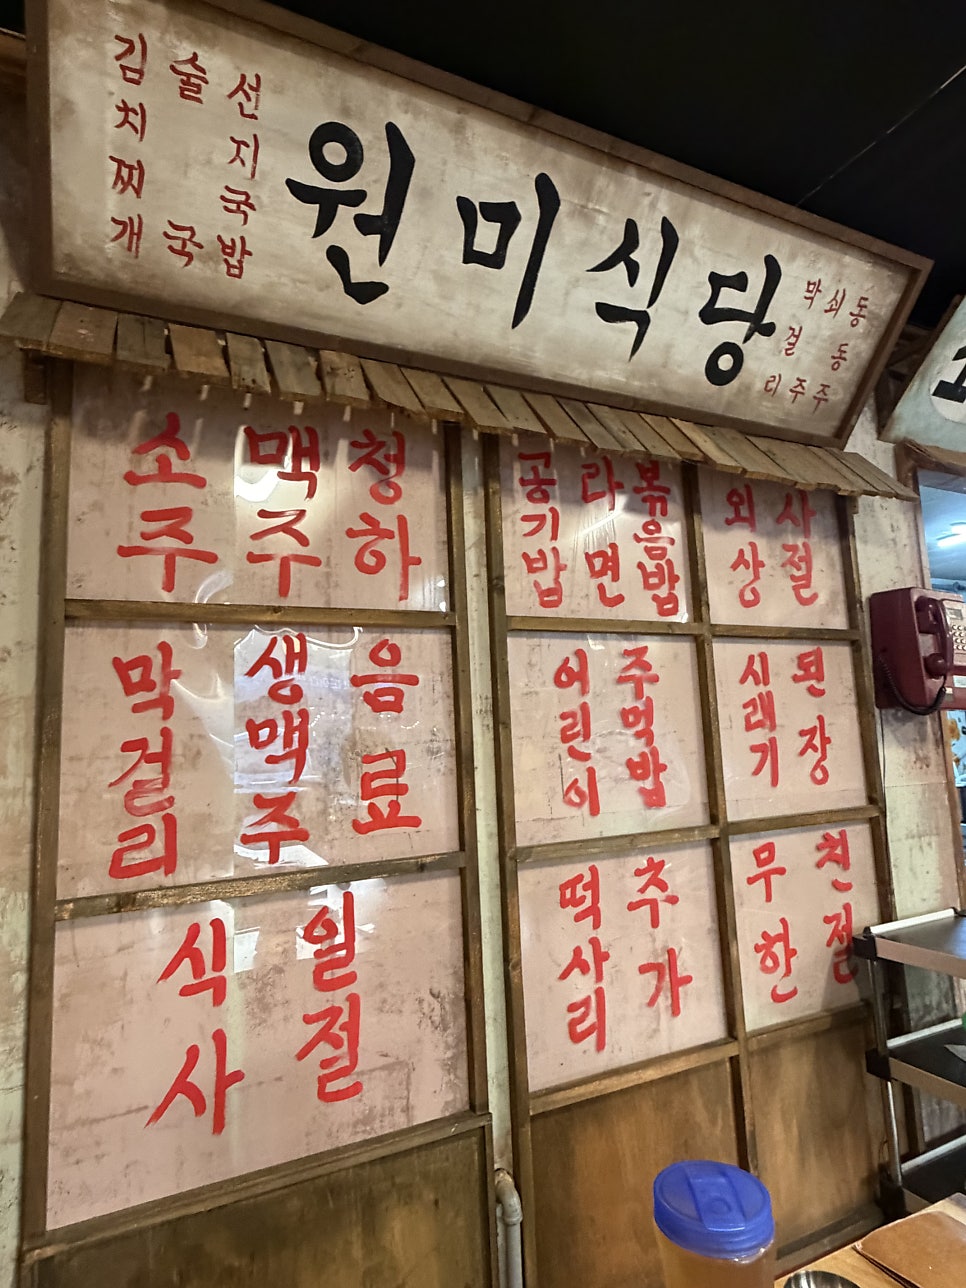 김치찌개
술국
선지국밥
원미식당
막걸리
쇠주
동동주
소주
맥주
청하
막걸리
생맥주
음료
식사
일절
공기밥
라면
볶음밥
외상
사절
어린이
주먹밥
시래기
된장
떡사리
추가
무한
친절